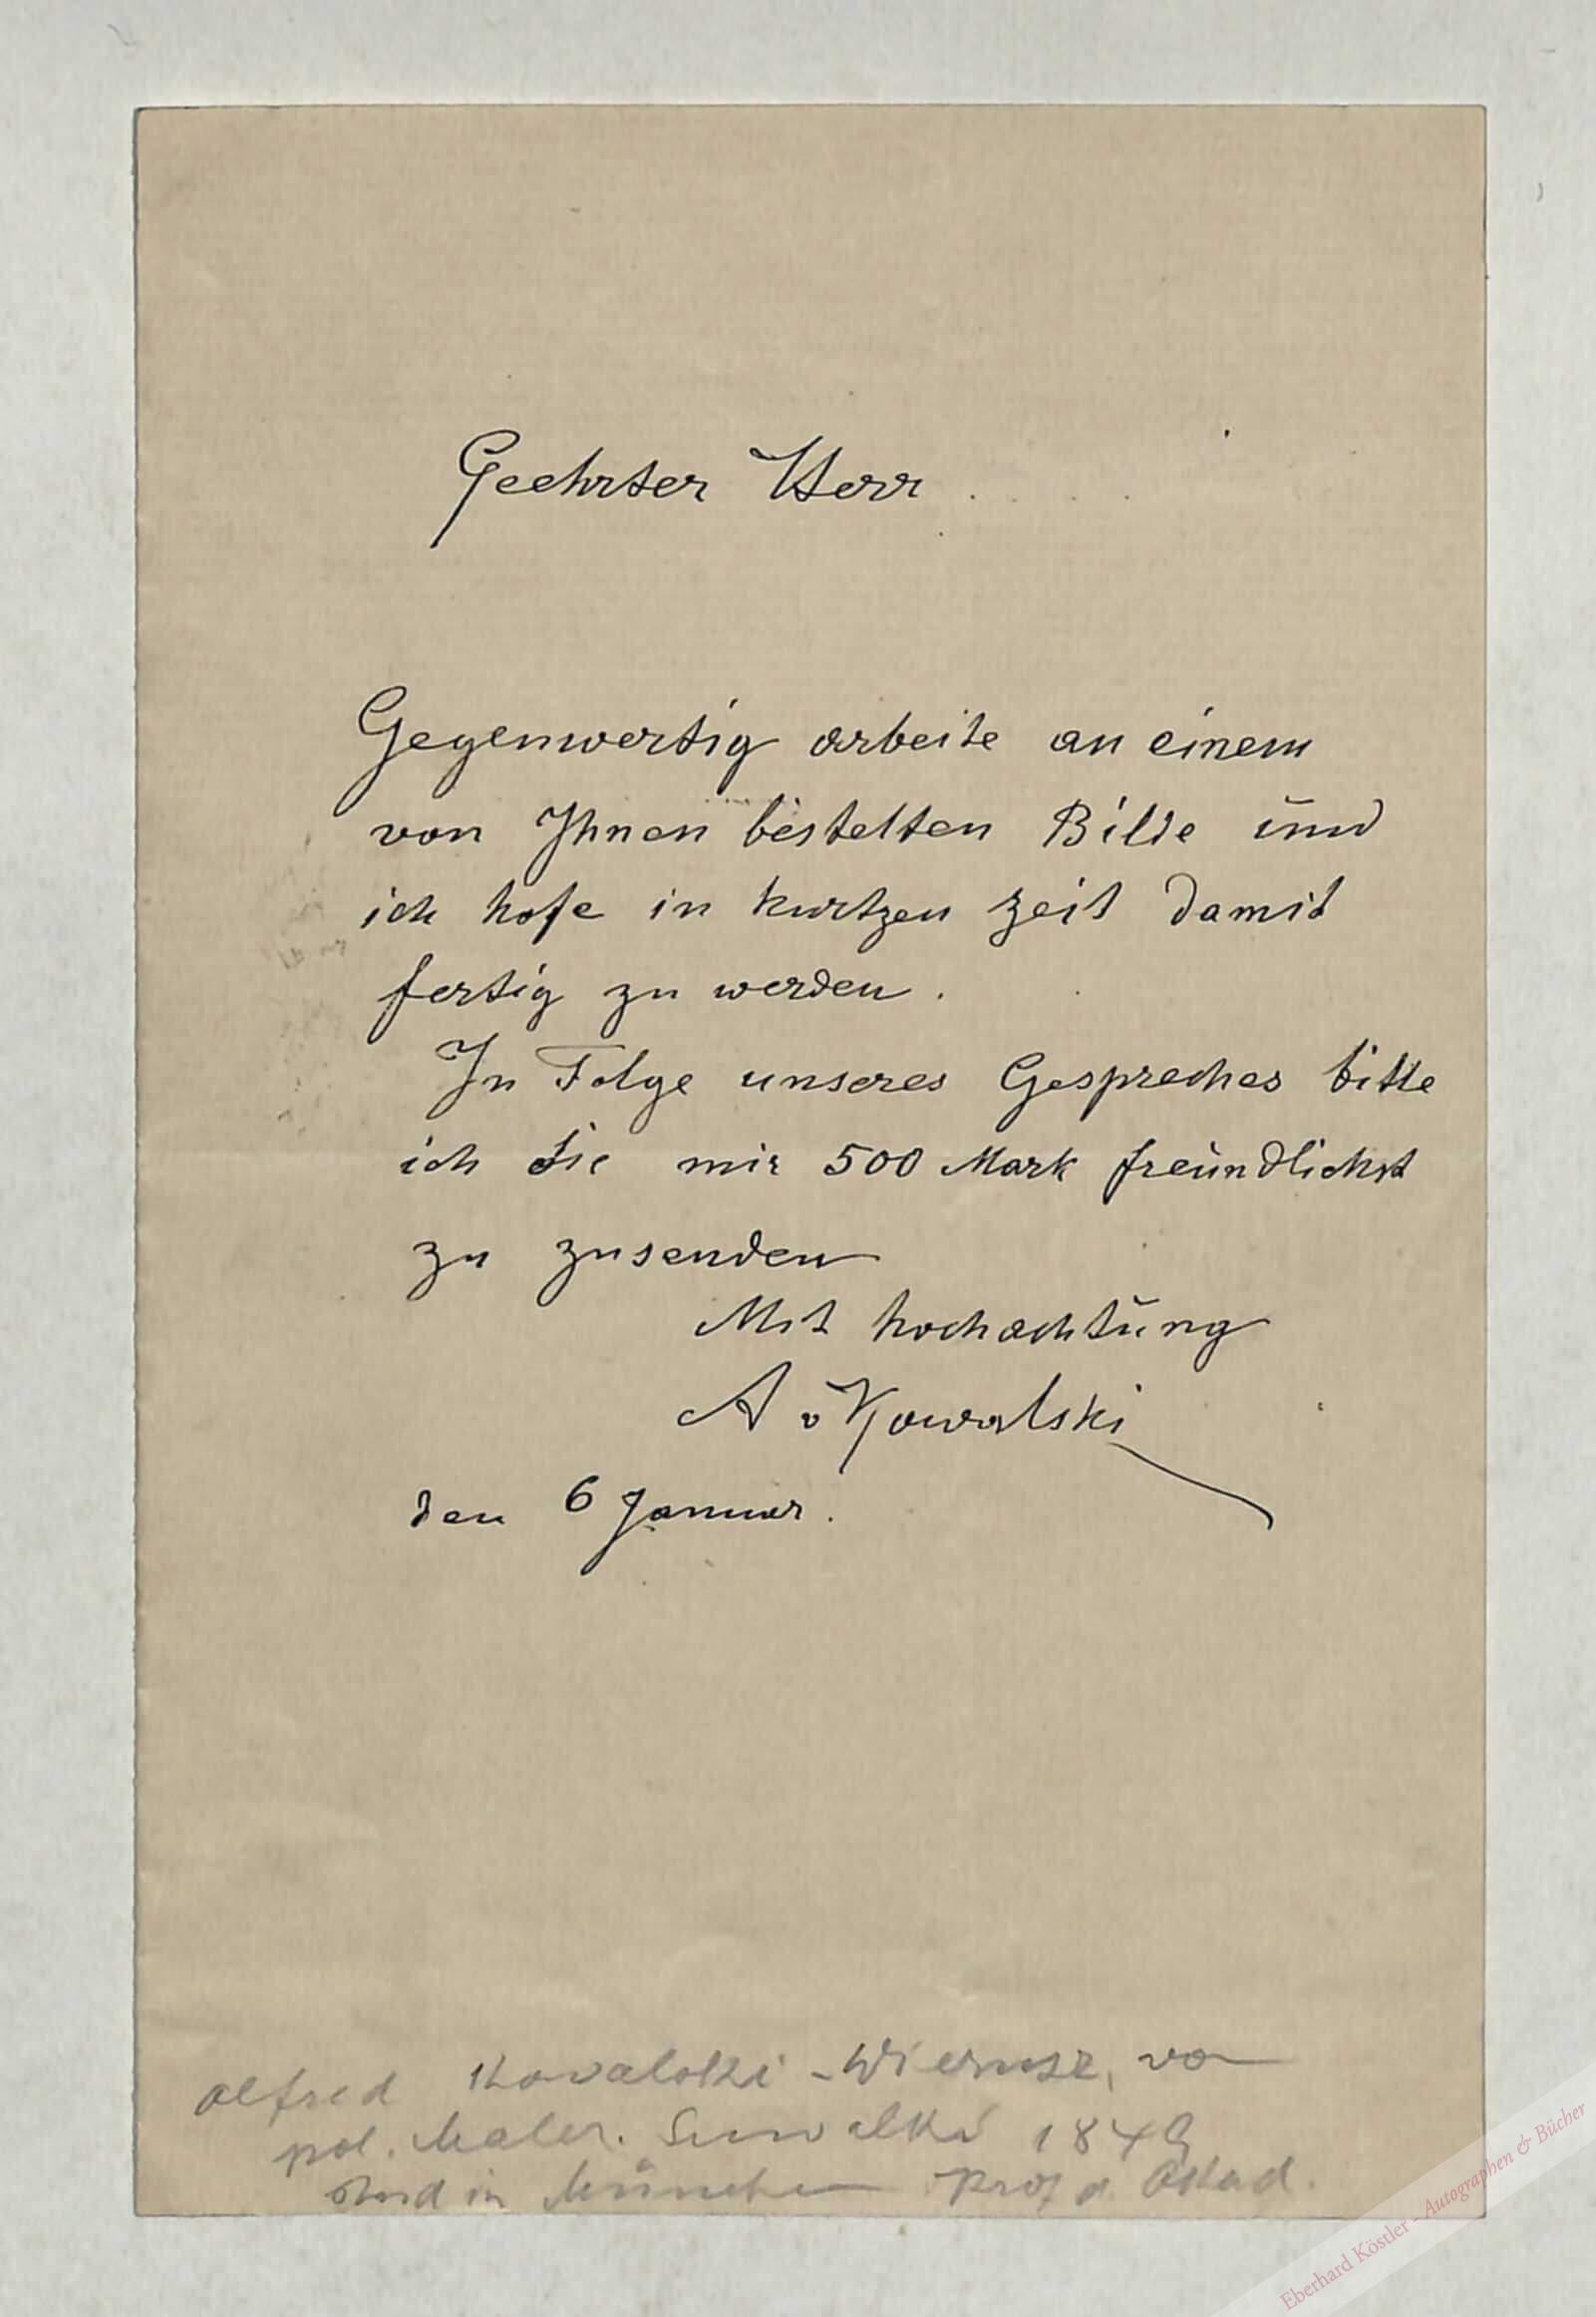 Geehrter Herr
Gegenwertig arbeite an einem
von Ihnen bestelten Bilde und
ich hofe in kurtzen zeit damit
fertig zu werden.
In Folge unseres Gespreches bitte
ich Sie mir 500 Mark freundlichst
zu zusenden
Mit hochachtung
A v Kowalski
den 6 Januar.
Alfred Kovalski-Wierusz, von
pol. Maler. Suwalki 1849
stud in München Prof a. Akad.
Eberhard Köstler - Autographen & Bücher